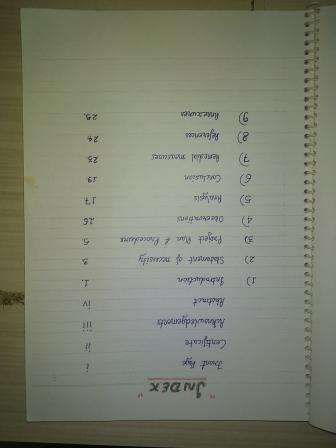 "INDEX"
Front Page i
Certificate ii
Acknowledgements iii
Abstract iv
1) Introduction 1.
2) Statement of necessity 3.
3) Project Plan & Procedures 5.
4) Observations 16
5) Analysis 17
6) Conclusion 19
7) Remedial measures 23
8) References 24
9) Annexures 25.